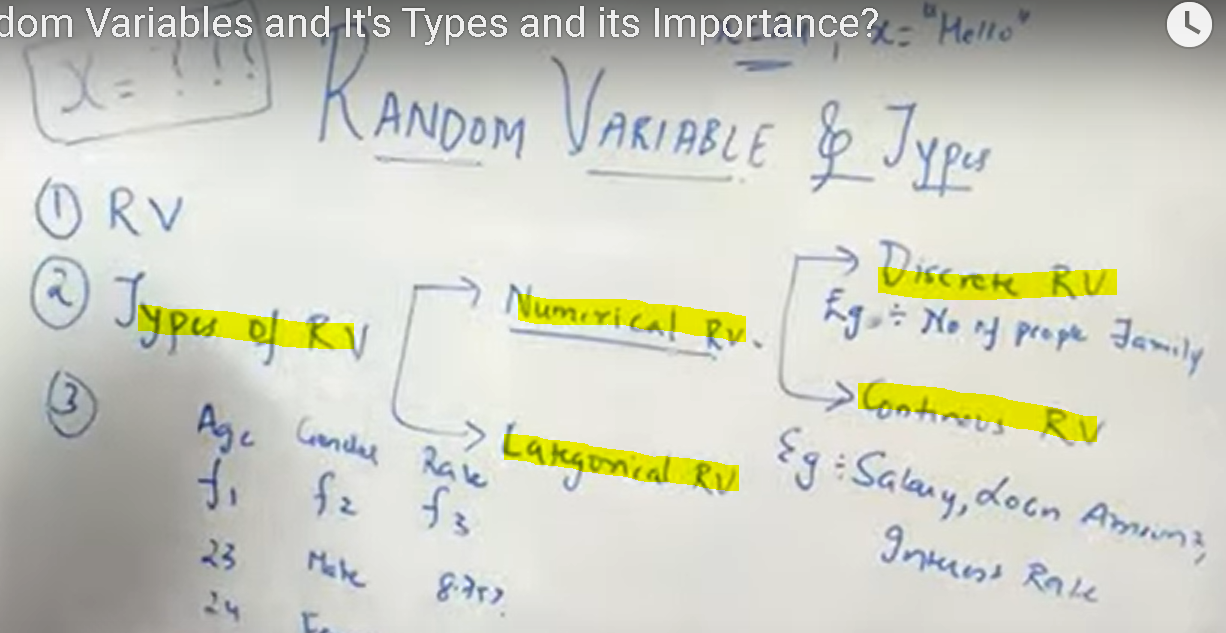 dom Variables and It's Types and its Importance?
x = "Hello"
x = ! ! !
RANDOM VARIABLE & Types
① RV
② Types of RV
Numerical RV.
Discrete RV
Eg.÷ No of people Family
Continous RV
Eg ÷ Salary, Loan Amount,
Interest Rate
Categorical RV
③
Age Gender Rate
f1 f2 f3
23 Male
24